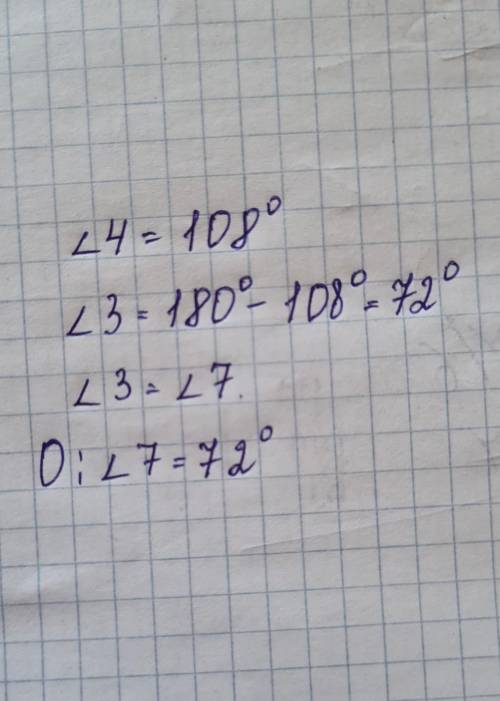 ∠4 = 108°
∠3 = 180° - 108° = 72°
∠3 = ∠7.
О: ∠7 = 72°